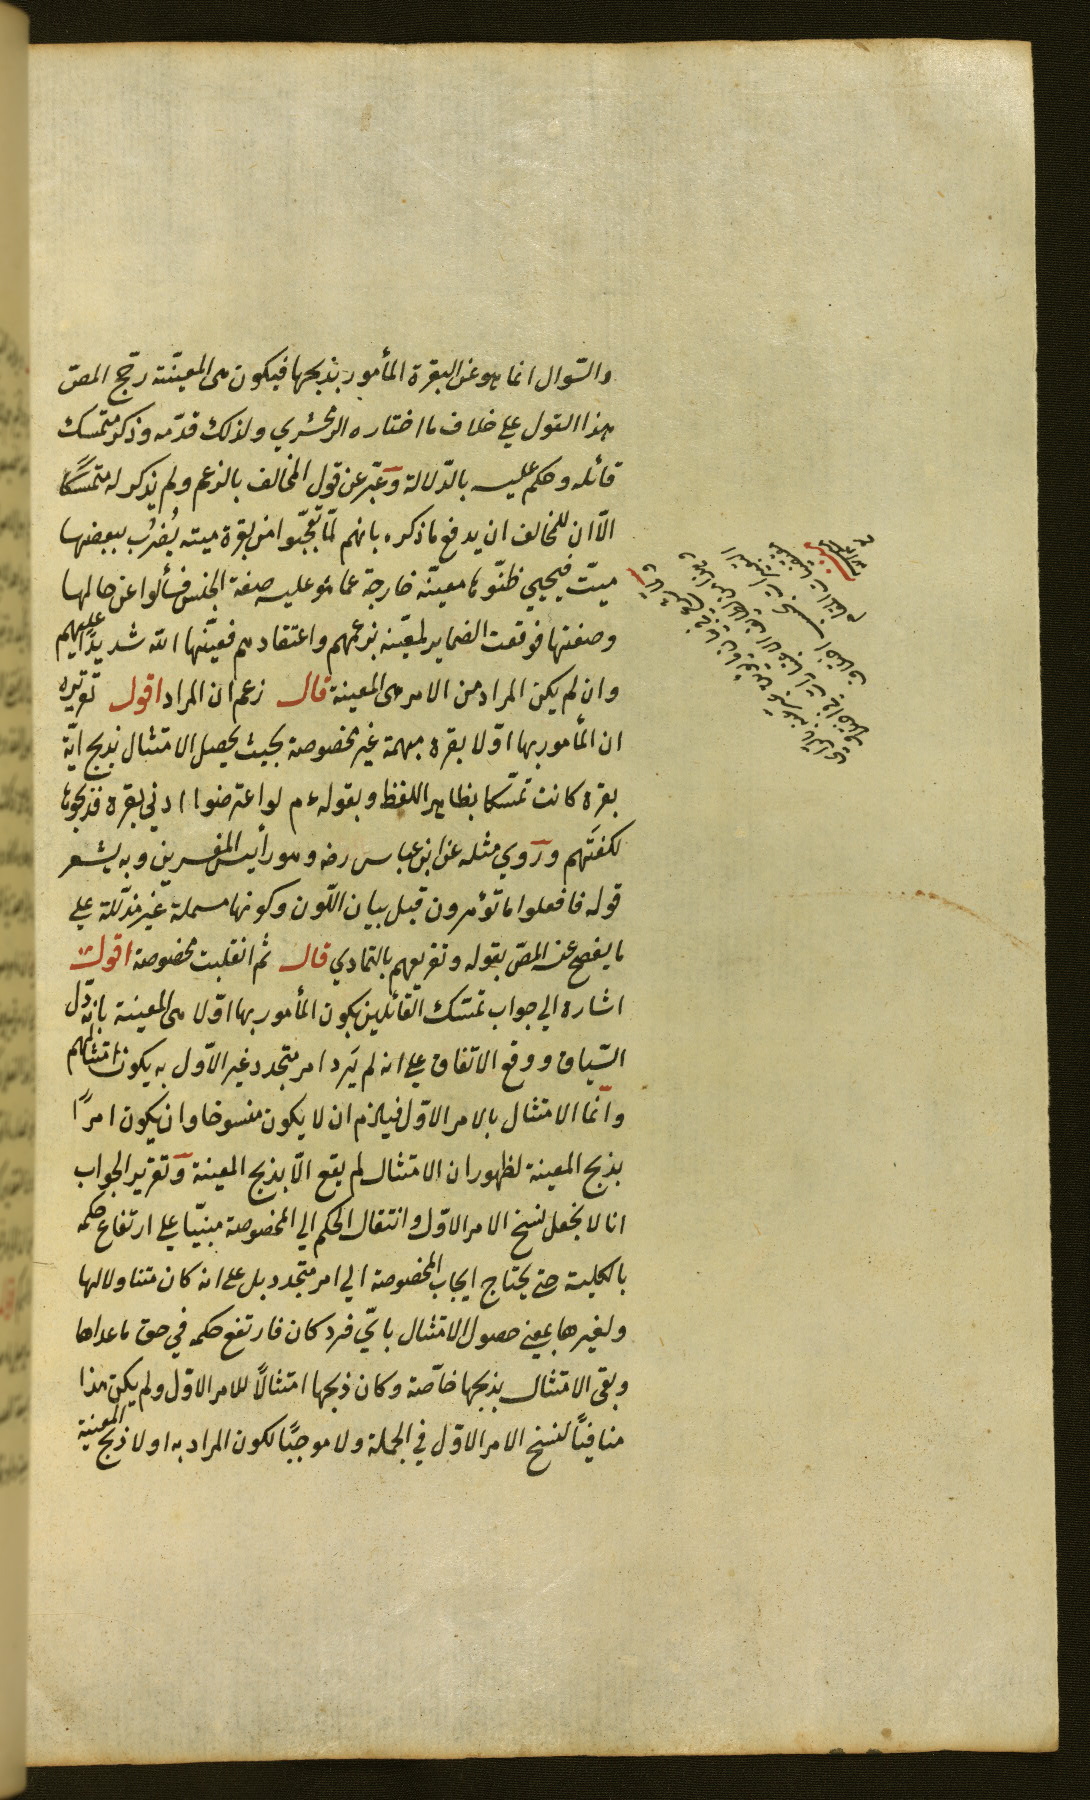 والسّوال انما هو عن البقرة المأمور بذبحها فيكون هى المعيّنة رجّح المصّ
هذا القول على خلاف ما اختاره الزمخشري ولذلك قدّمه وذكر متمسك
قائله وحكم عليه بالدّلالة وعبّر عن قول المخالف بالزعم ولم يذكر له متمسّكًا
الّا ان للمخالف ان يدفع ما ذكره بانهم لمّا تعجّبوا من بقرة ميته يُضرَب ببعضها
ميّت فيحيي ظنّوها معيّنة خارجة عما هو عليه صفة الجنس فسألوا عن حالها
وصفتها فوقعت الضماير لمعيّنه بزعمهم واعتقادهم فعيّنها الله شديدًا عليهم
وان لم يكن المراد من الامر هى المعينة قال زعم ان المراد اقول تقريره
ان المأمور بها اوّلا بقره مبهمة غير مخصوصة بحيث يحصل الامتثال بذبح ايّة
بقره كانت تمسّكا بظاهر اللفظ وبقوله ءم لو اعترضوا ادنى بقره فذبحوها
لكفَتهم وروي مثله عن ابن عباس رضه وهو رأيس المفسرين وبه يشعر
قوله فافعلوا ما تؤمرون قبل بيان اللّون وكونها مسلمة غير مذلّلة على
ما يفصح عنه المصّ بقوله وتقريعهم بالتمادي قال ثم انقلبت مخصوصة اقول
اشاره الى جواب تمسّك القائلين بكون المأمور بها اوّلا هى المعينة بانه دلّ
السّياق ووقع الاتفاق على انه لم يَرد امر متجدد غير الاوّل به يكون امتثالهم
وانّما الامتثال بالامر الاوّل فيلزم ان لا يكون منسوخا وان يكون امرًا
بذبح المعينة لظهور ان الامتثال لم يقع الّا بذبح المعينة وتقرير الجواب
انا لا نجعل نسخ الامر الاوّل وانتقال الحكم الى المخصوصة مبنيّا على ارتفاع حكمه
بالكلية حتى يحتاج ايجاب المخصوصة الى امر متجدد بل على انه كان متناولا لها
ولغيرها بمعنى حصول الامتثال بايّ فرد كان فارتفع حكمه في حق ما عداها
وبقى الامتثال بذبحها خاصّة وكان ذبحها امتثالًا للامر الاوّل ولم يكن هذا
منافيًا لنسخ الامر الاوّل في الجملة ولا موجبًا لكون المراد به اولا ذبح المعينة